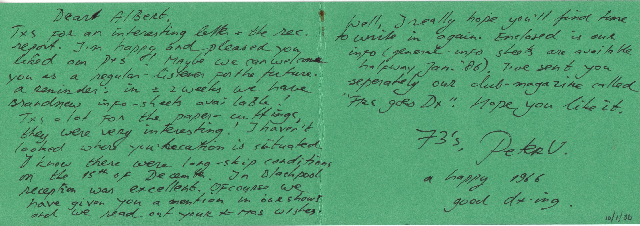 Dear Albert,
Txs for an interesting letter + the rec.
report. I'm happy and pleased you
liked our Pxs! Maybe we can welcome
you as a regular-listener for the future.
a reminder: in ± 2 weeks we have
brandnew info-sheets available!
Txs a lot for the paper-cuttings,
they were very interesting! I haven't
looked where your location is situated
I know there were long-skip conditions
on the 15th of Decemth. In Blackpool
reception was excellent. Ofcourse we
have given you a mention in our shows
and we read out your X-mas wishes!
Well, I really hope you'll find time
to write in again. Enclosed is our
info (general-info sheets are available
halfway Jan. '86) I've sent you
seperately our club-magazine called
"FRS goes Dx". Hope you like it.
73's, Peter V.
a happy 1986
good dx-ing.